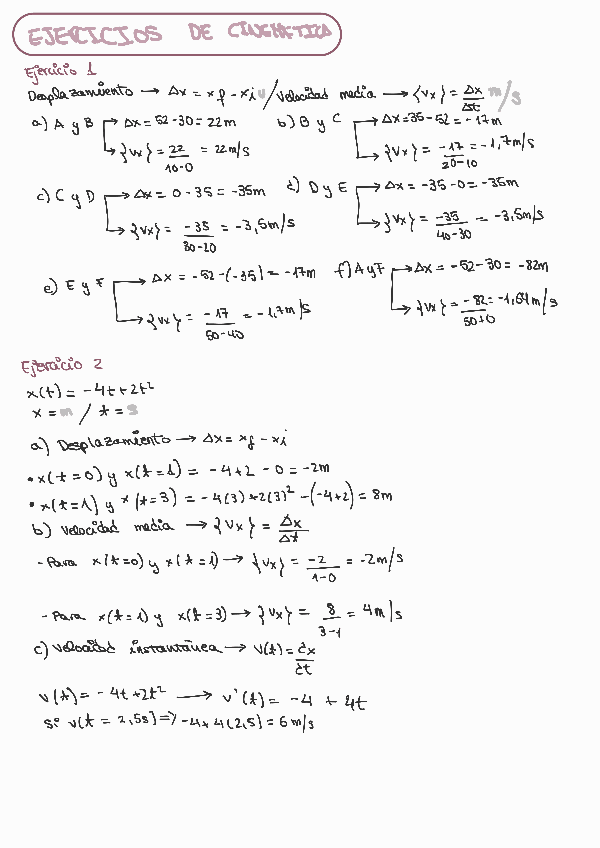 EJERCICIOS DE CINEMETICA
Ejercicio 1
Desplazamiento → Δx = xf - xi / Velocidad media → {Vx} = Δx/Δt m/s
a) A y B → Δx = 52-30 = 22m b) B y C → Δx = 35-52 = -17m
→ {Vx} = 22/10-0 = 22m/s → {Vx} = -17/20-10 = -1,7m/s
c) C y D → Δx = 0-35 = -35m d) D y E → Δx = -35-0 = -35m
→ {Vx} = -35/30-20 = -3,5m/s → {Vx} = -35/40-30 = -3,5m/s
e) E y F → Δx = -52-(-35) = -17m f) A y F → Δx = -52-30 = -82m
→ {Vx} = -17/50-40 = -1,7m/s → {Vx} = -82/50+0 = -1,64m/s
Ejercicio 2
x(t) = -4t+2t²
x = m / t = s
a) Desplazamiento → Δx = xf - xi
• x(t=0) y x(t=1) = -4+2-0 = -2m
• x(t=1) y x(t=3) = -4(3)+2(3)²-(-4+2) = 8m
b) Velocidad media → {Vx} = Δx/Δt
- Para x(t=0) y x(t=1) → {Vx} = -2/1-0 = -2m/s
- Para x(t=1) y x(t=3) → {Vx} = 8/3-1 = 4m/s
c) Velocidad instantánea → V(t) = dx/dt
v(t) = -4t+2t² → v'(t) = -4 + 4t
Si v(t = 2,5s) => -4+4(2,5) = 6m/s